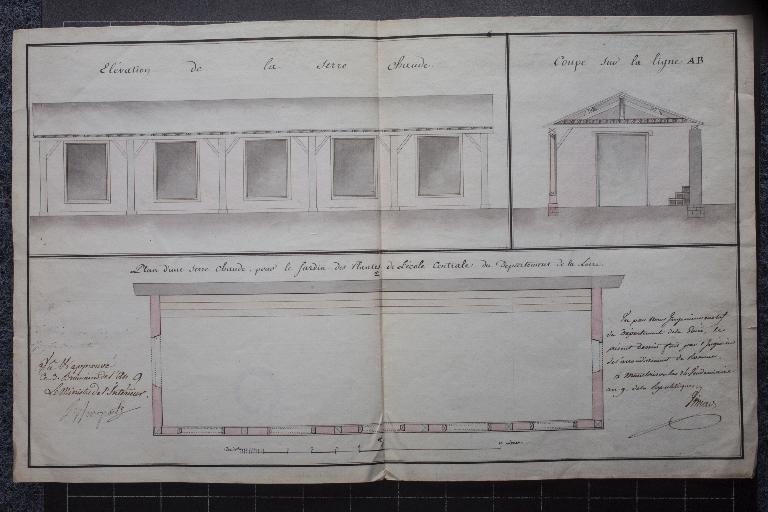 Elévation de la Serre chaude.
Coupe sur la ligne AB
Plan d'une Serre Chaude, pour le Jardin des Plantes de L'école Centrale du Département de la Loire.
Vu par nous Ingénieur en chef
du Département de la Loire, le
présent dessin fait par l'Ingénieur
de l'arrondissement de
à
an 9 de la République
Vu & approuvé
Ce 3 Brumaire de l'An 9
Le Ministre de l'Intérieur